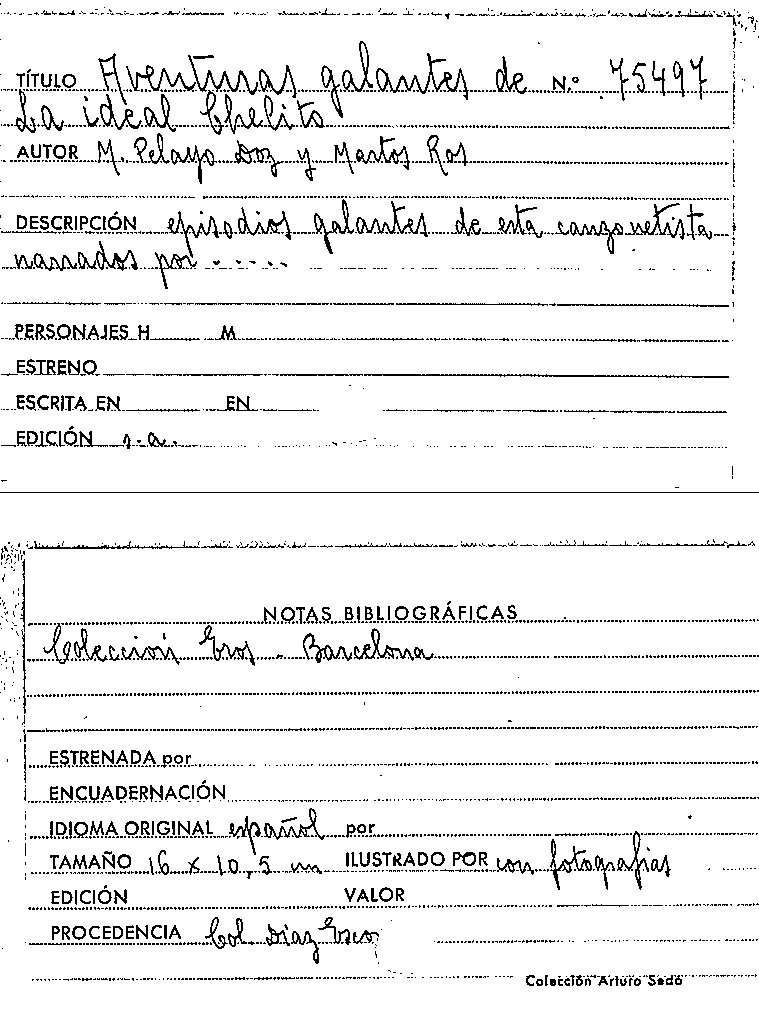 TÍTULO Aventuras galantes de N.º 75497
La ideal Chelito
AUTOR M. Pelayo Doz y Martos Ros
DESCRIPCIÓN episodios galantes de esta canzonetista
narrados por .....
PERSONAJES H M
ESTRENO
ESCRITA EN EN
EDICIÓN s.a.
NOTAS BIBLIOGRÁFICAS
Colección Eros - Barcelona
ESTRENADA por
ENCUADERNACIÓN
IDIOMA ORIGINAL español por
TAMAÑO 16 x 10,5 cm ILUSTRADO POR con fotografias
EDICIÓN VALOR
PROCEDENCIA Col. Diaz
Colección Arturo Sedó